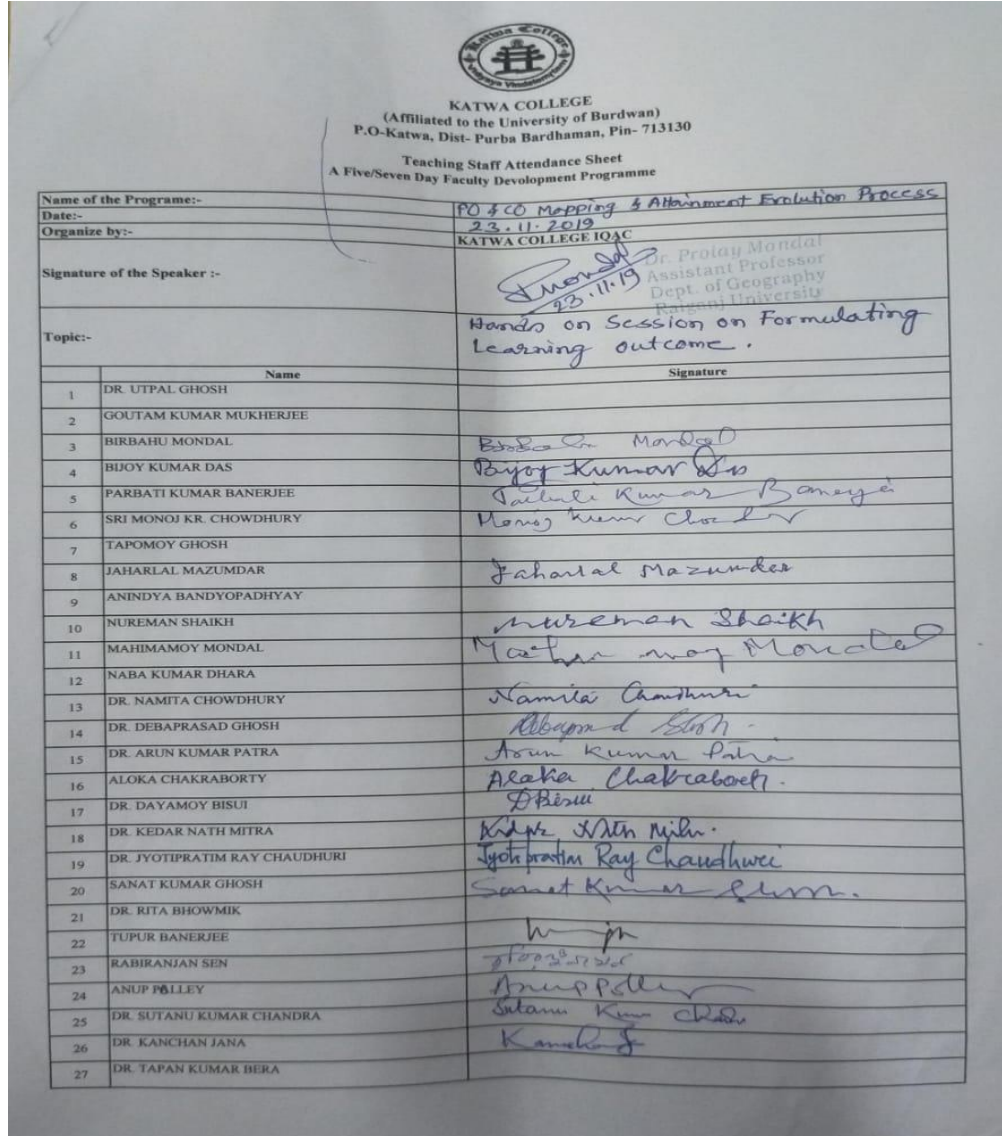 Katwa College
Vidyaya Vindatemritam
KATWA COLLEGE
(Affiliated to the University of Burdwan)
P.O-Katwa, Dist- Purba Bardhaman, Pin- 713130
Teaching Staff Attendance Sheet
A Five/Seven Day Faculty Devolopment Programme
Name of the Programe:- PO & CO Mapping & Attainment Evolution Process
Date:- 23.11.2019
Organize by:- KATWA COLLEGE IQAC
Signature of the Speaker :- 23.11.19
Dr. Prolay Mondal
Assistant Professor
Dept. of Geography
Raiganj University
Topic:- Hands on Session on Formulating
Learning outcome.
Name Signature
1 DR. UTPAL GHOSH
2 GOUTAM KUMAR MUKHERJEE
3 BIRBAHU MONDAL Mondal
4 BIJOY KUMAR DAS Bijoy Kumar Das
5 PARBATI KUMAR BANERJEE Kumar Banerjee
6 SRI MONOJ KR. CHOWDHURY Monoj Kumar
7 TAPOMOY GHOSH
8 JAHARLAL MAZUMDAR Jaharlal Mazumder
9 ANINDYA BANDYOPADHYAY
10 NUREMAN SHAIKH Nureman Shaikh
11 MAHIMAMOY MONDAL Mondal
12 NABA KUMAR DHARA
13 DR. NAMITA CHOWDHURY Namita Chowdhuri
14 DR. DEBAPRASAD GHOSH
15 DR. ARUN KUMAR PATRA Arun Kumar Patra
16 ALOKA CHAKRABORTY Aloka Chakraborty.
17 DR. DAYAMOY BISUI DBisui
18 DR. KEDAR NATH MITRA
19 DR. JYOTIPRATIM RAY CHAUDHURI Jyotipratim Ray Chaudhuri
20 SANAT KUMAR GHOSH Sanat Kumar
21 DR. RITA BHOWMIK
22 TUPUR BANERJEE
23 RABIRANJAN SEN
24 ANUP PALLEY Anup Palley
25 DR. SUTANU KUMAR CHANDRA Sutanu Kumar
26 DR. KANCHAN JANA
27 DR. TAPAN KUMAR BERA